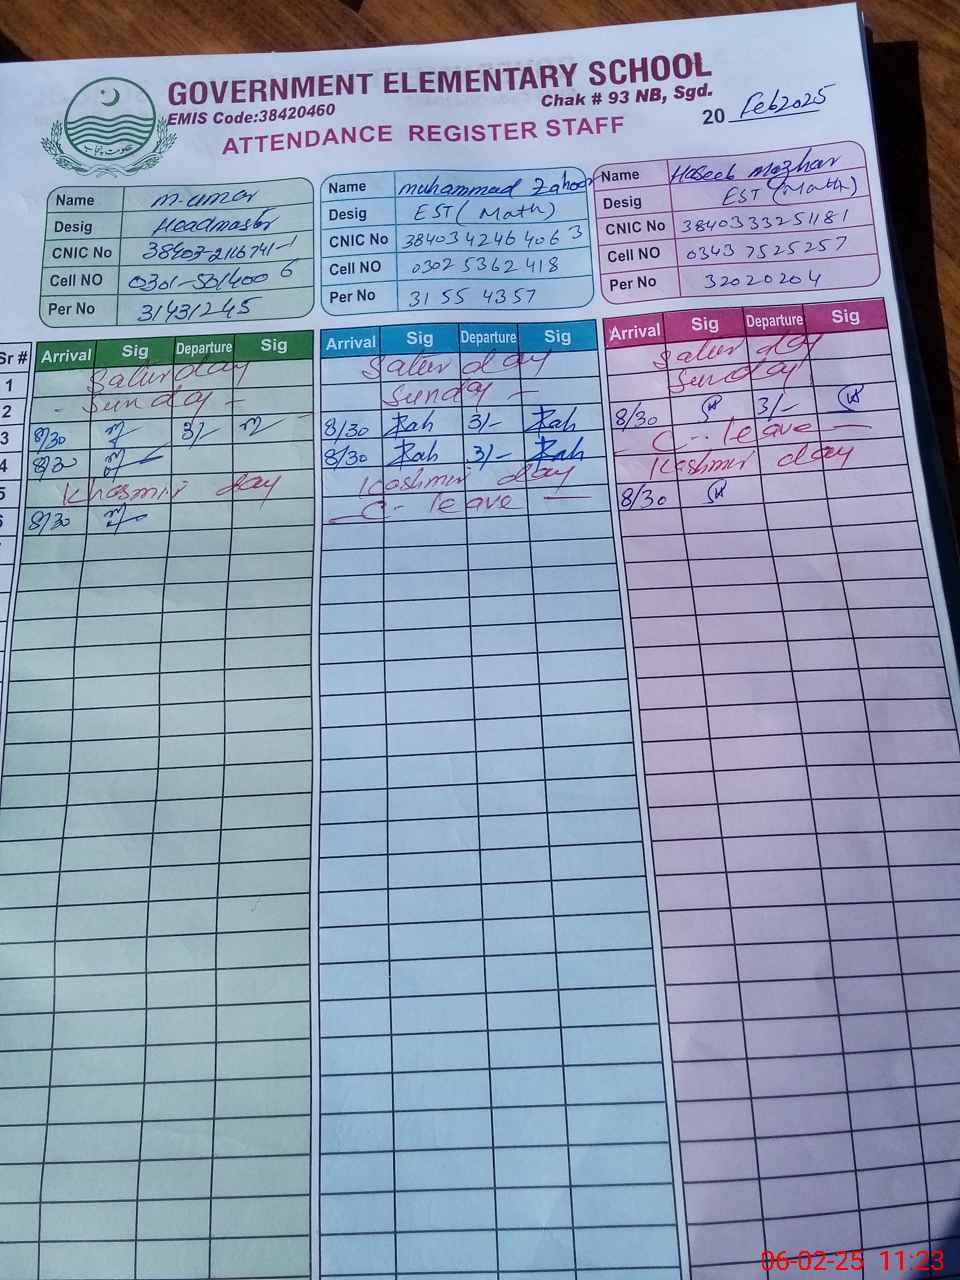 GOVERNMENT ELEMENTARY SCHOOL
EMIS Code:38420460
Chak # 93 NB, Sgd.
ATTENDANCE REGISTER STAFF
20 Feb 2025
حکومت پنجاب
Name M. Umar
Desig Headmaster
CNIC No 38403-2116741-1
Cell NO 0301-5014006
Per No 31431245
Name Muhammad Zahoor
Desig EST (Math)
CNIC No 3840342464063
Cell NO 0302 5362418
Per No 31554357
Name Haseeb Mazhar
Desig EST (Math)
CNIC No 3840333251181
Cell NO 0343 7525257
Per No 32020204
Sr # Arrival Sig Departure Sig Arrival Sig Departure Sig Arrival Sig Departure Sig
1 Saturday Saturday Saturday
2 - Sunday - Sunday - Sunday
3 8/30 3/- 8/30 Rah 3/- Rah 8/30 3/-
4 8/30 8/30 Rah 3/- Rah C-- leave
5 Khasmiri day Kashmir day Kashmir day
8/30 C- leave 8/30
06-02-25 11:23